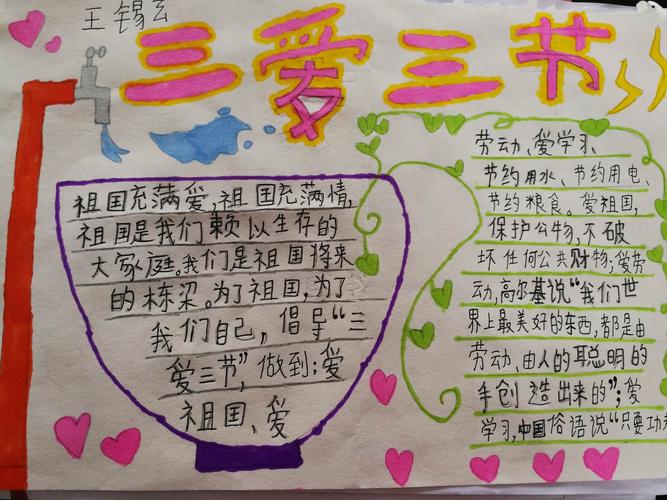 王锡云
三爱三节
祖国充满爱,祖国充满情,
祖国是我们赖以生存的
大家庭。我们是祖国将来
的栋梁。为了祖国,为了
我们自己,倡导“三
爱三节”,做到:爱
祖国、爱
劳动、爱学习、
节约用水、节约用电、
节约粮食。爱祖国,
保护公物,不破
坏任何公共财物;爱劳
动,高尔基说“我们世
界上最美好的东西,都是由
劳动、由人的聪明的
手创造出来的”;爱
学习,中国俗语说“只要功夫